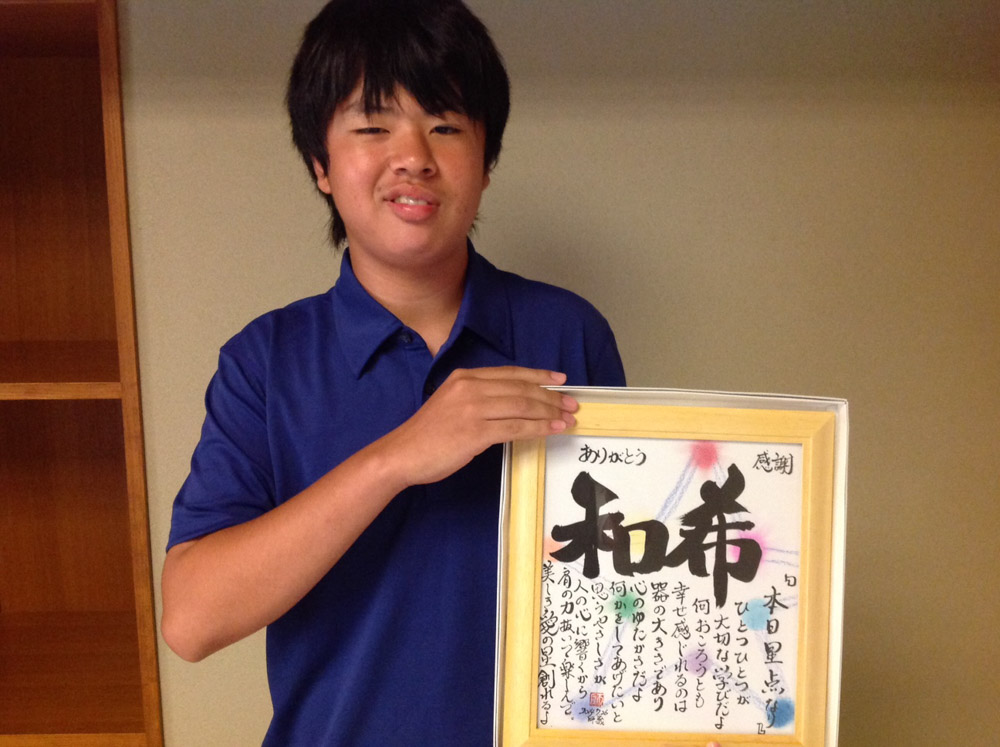 ありがとう
感謝
和希
「本日星点なり」
ひとつひとつが
大切な学びだよ
何おころうとも
幸せ感じれるのは
器の大きさであり
心のゆたかさだよ
何かをしてあげたいと
思うやさしさが
人の心に響くから
肩の力抜いて楽しんで。
美しき愛の星創れるよ